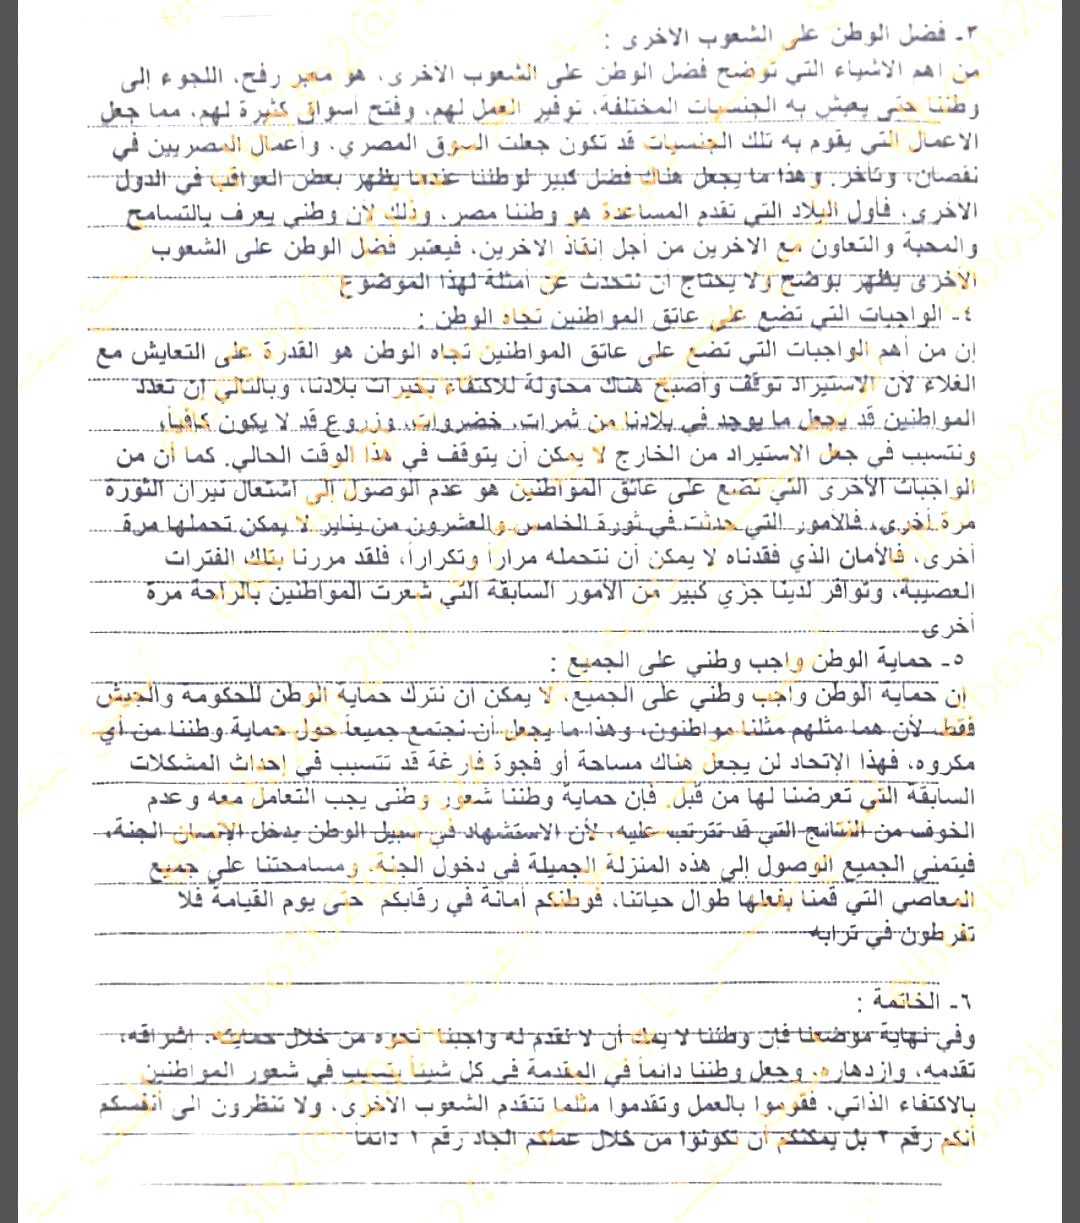 ٣- فضل الوطن على الشعوب الأخرى :
من أهم الأشياء التي توضح فضل الوطن على الشعوب الأخرى، هو معبر رفح، اللجوء إلى
وطننا حتى يعيش به الجنسيات المختلفة، توفير العمل لهم، وفتح أسواق كثيرة لهم، مما جعل
الاعمال التي يقوم به تلك الجنسيات قد تكون جعلت السوق المصري، وأعمال المصريين في
نقصان، وتأخر. وهذا ما يجعل هناك فضل كبير لوطننا عندما يظهر بعض العواقب في الدول
الأخرى، فأول البلاد التي تقدم المساعدة هو وطننا مصر، وذلك لأن وطني يعرف بالتسامح
والمحبة والتعاون مع الآخرين من أجل إنقاذ الآخرين، فيعتبر فضل الوطن على الشعوب
الأخرى يظهر بوضح ولا يحتاج أن نتحدث عن أمثلة لهذا الموضوع
٤- الواجبات التي تضع على عاتق المواطنين تجاه الوطن :
إن من أهم الواجبات التي تضع على عاتق المواطنين تجاه الوطن هو القدرة على التعايش مع
الغلاء لأن الاستيراد توقف وأصبح هناك محاولة للاكتفاء بخيرات بلادنا، وبالتالي إن تعدد
المواطنين قد يجعل ما يوجد في بلادنا من ثمرات، خضروات، وزروع قد لا يكون كافياً،
ونتسبب في جعل الاستيراد من الخارج لا يمكن أن يتوقف في هذا الوقت الحالي. كما أن من
الواجبات الأخرى التي تضع على عاتق المواطنين هو عدم الوصول إلى اشتعال نيران الثورة
مرة أخرى، فالأمور التي حدثت في ثورة الخامس والعشرون من يناير لا يمكن تحملها مرة
أخرى، فالأمان الذي فقدناه لا يمكن أن نتحمله مراراً وتكراراً، فلقد مررنا بتلك الفترات
العصيبة، وتوافر لدينا جزي كبير من الأمور السابقة التي شعرت المواطنين بالراحة مرة
أخرى
٥- حماية الوطن واجب وطني على الجميع :
إن حماية الوطن واجب وطني على الجميع، لا يمكن أن نترك حماية الوطن للحكومة والجيش
فقط لأن هما مثلهم مثلنا مواطنون، وهذا ما يجعل أن نجتمع جميعاً حول حماية وطننا من أي
مكروه، فهذا الإتحاد لن يجعل هناك مساحة أو فجوة فارغة قد تتسبب في إحداث المشكلات
السابقة التي تعرضنا لها من قبل. فإن حماية وطننا شعور وطني يجب التعامل معه وعدم
الخوف من النتائج التي قد تترتب عليه، لأن الاستشهاد في سبيل الوطن يدخل الإنسان الجنة،
فيتمني الجميع الوصول إلى هذه المنزلة الجميلة في دخول الجنة، ومسامحتنا على جميع
المعاصي التي قمنا بفعلها طوال حياتنا، فوطنكم أمانة في رقابكم حتى يوم القيامة فلا
تفرطون في ترابه
٦- الخاتمة :
وفي نهاية موضعنا فإن وطننا لا يمك أن لا نقدم له واجبنا نحوه من خلال حمايته، اشراقه،
تقدمه، وازدهاره، وجعل وطننا دائماً في المقدمة في كل شيئاً يتسبب في شعور المواطنين
بالاكتفاء الذاتي، فقوموا بالعمل وتقدموا مثلما تتقدم الشعوب الأخرى، ولا تنظرون الى أنفسكم
أنكم رقم ٢ بل يمكنكم أن تكونوا من خلال عملكم الجاد رقم ١ دائماً